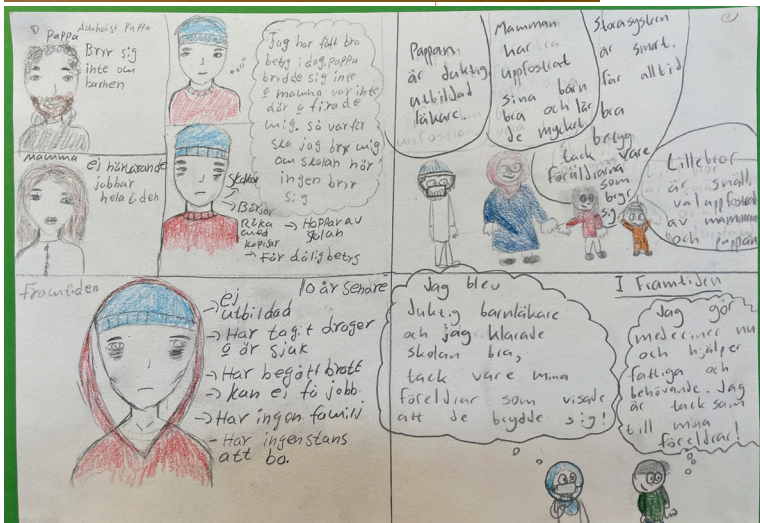 ① Pappa
Alkoholist Pappa
Bryr sig
inte om
barnen
Jag har fått bra
betyg i dag. pappa
brydde sig inte
o mamma var inte
där o firade
mig. så varför
ska jag bry mig
om skolan när
ingen bryr
sig
mamma
ej närvarande
jobbar
hela tiden
skolkar
→ Börjar
Röka
med
kopisar
→ Hoppar av
skolan
→ Får dålig betyg
Framtiden
10 år senare
→ ej
utbildad
→ Har tagit droger
o är sjuk
→ Har begått brott
→ kan ej få jobb
→ Har ingen familj
- Har ingenstans
att bo.
Pappan
är duktig,
utbildad
läkare.
Mamman
har
uppfostrat
sina barn
bra och lär
de mycket
Storasystern
är smart.
får alltid
bra
betyg
tack vare
föräldrarna
som
bryr
sig
Lillebror
är snäll,
väl uppfostrad
av mamman
och pappan
Jag blev
duktig barnläkare
och jag klarade
skolan bra,
tack vare mina
föreldrar som visade
att de brydde sig!
I Framtiden
Jag gör
mediciner nu
och hjälper
fattiga och
behövande. Jag
är tack sam
till mina
föreldrar!